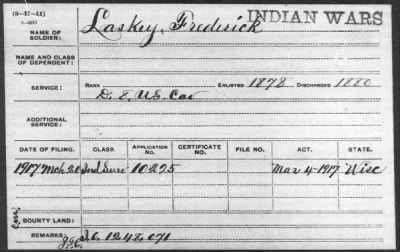 (3-II-II)
INDIAN WARS
NAME OF SOLDIER: Laskey, Frederick
NAME AND CLASS OF DEPENDENT:
SERVICE: RANK ENLISTED 1878 DISCHARGED 1880
D. E, U.S. Cav
ADDITIONAL SERVICE:
DATE OF FILING. CLASS. APPLICATION NO. CERTIFICATE NO. FILE NO. ACT. STATE.
1917 Mch 20 Ind Surv 10225 Mar 4-1917 Wisc
BOUNTY LAND:
REMARKS: I.C. 1248,071